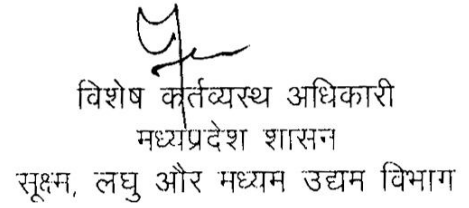 विशेष कर्तव्यस्थ अधिकारी
मध्यप्रदेश शासन
सूक्ष्म, लघु और मध्यम उद्यम विभाग